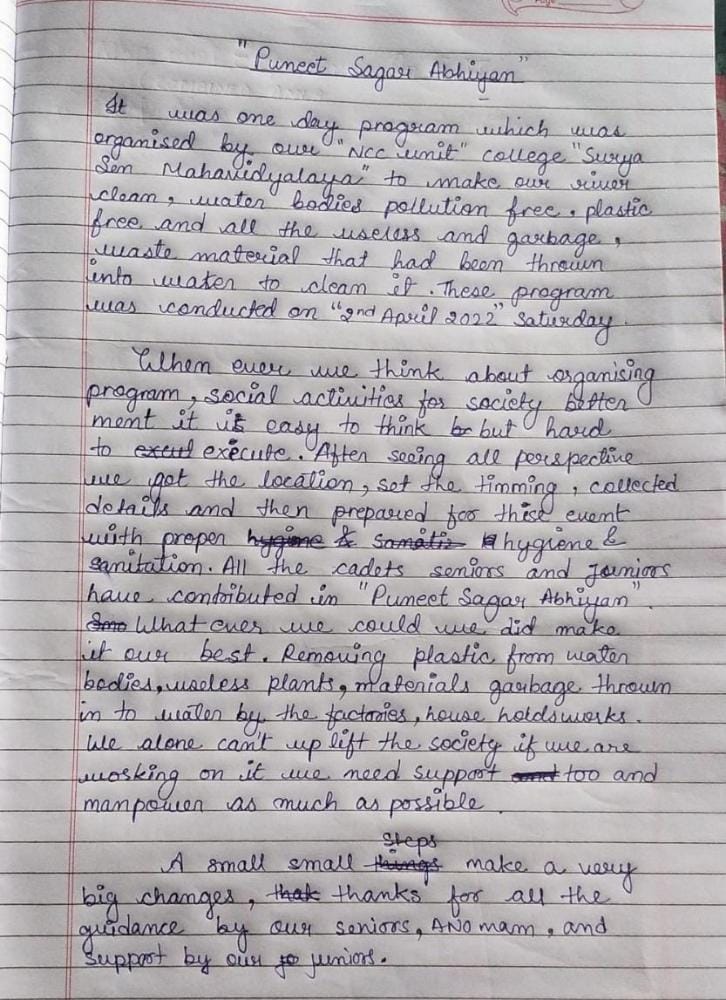 "Puneet Sagar Abhiyan"
It was one day program which was
organised by our "NCC unit" college "Surya
Sen Mahavidyalaya" to make our river
clean, water bodies pollution free, plastic
free and all the useless and garbage,
waste material that had been thrown
into water to clean it. These program
was conducted on "2nd April 2022" Saturday.
When ever we think about organising
program, social activities for society better
ment it is easy to think but hard
to execute. After seeing all perspective
we got the location, set the timming, collected
details and then prepared for this event
with proper hygiene &
sanitation. All the cadets seniors and juniors
have contributed in "Puneet Sagar Abhiyan".
What ever we could we did make
it our best. Removing plastic from water
bodies, useless plants, materials garbage thrown
in to water by the factories, house holds works.
We alone can't up lift the society if we are
working on it we need support too and
manpower as much as possible.
Steps
A small small things make a very
big changes, that thanks for all the
guidance by our seniors, ANO mam, and
support by our juniors.